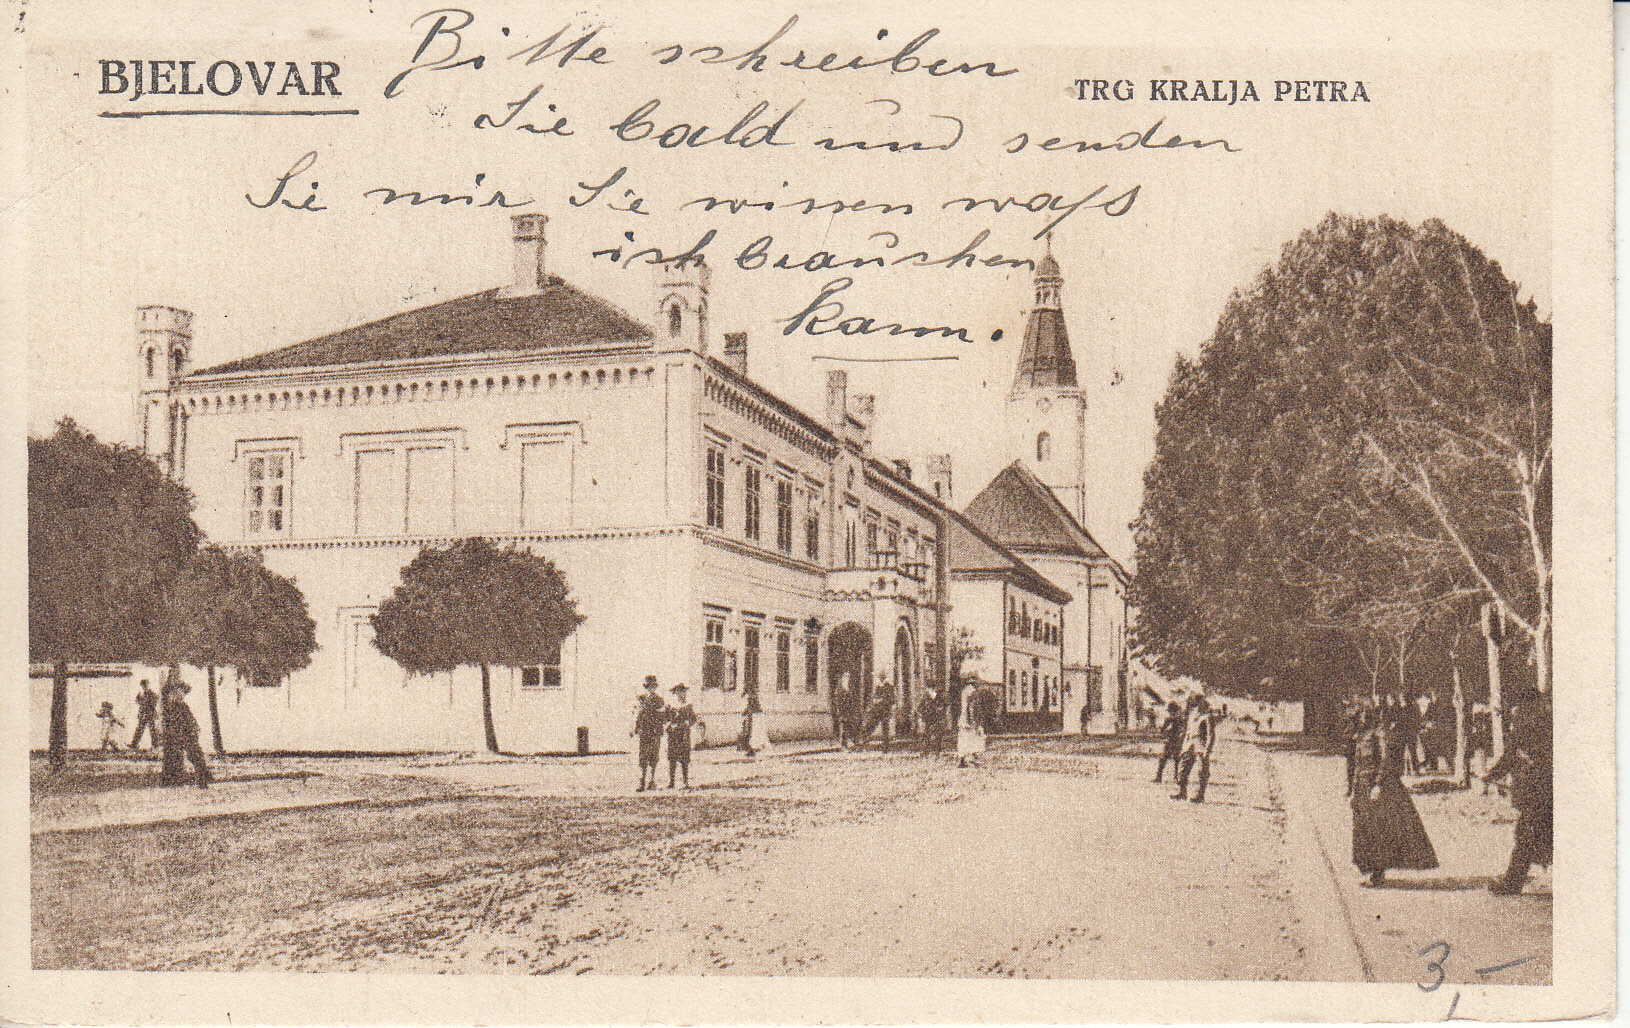 BJELOVAR
TRG KRALJA PETRA
Bitte schreiben
Sie bald und senden
Sie mir Sie wissen waſs
ich brauchen
kann.
3,-